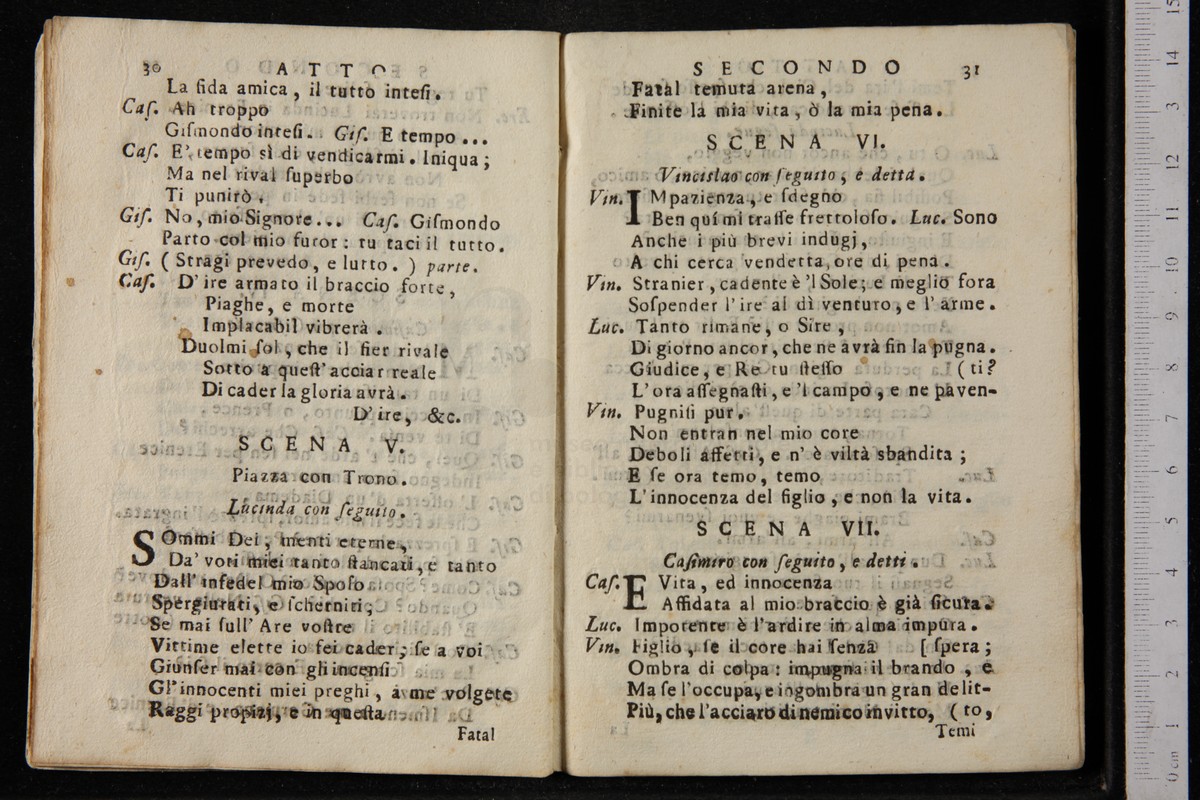 30 ATTO
La fida amica, il tutto intesi.
Cas. Ah troppo
Gismondo intesi. Gis. E tempo...
Cas. E' tempo sì di vendicarmi. Iniqua;
Ma nel rival superbo
Ti punirò.
Gis. No, mio Signore... Cas. Gismondo
Parto col mio furor: tu taci il tutto.
Gis. ( Stragi prevedo, e lutto. ) parte.
Cas. D'ire armato il braccio forte,
Piaghe, e morte
Implacabil vibrerà.
Duolmi sol, che il fier rivale
Sotto a quest'acciar reale
Di cader la gloria avrà.
D'ire, &c.
SCENA V.
Piazza con Trono.
Lucinda con seguito.
SOmmi Dei, menti eterne,
Da' voti miei tanto stancati, e tanto
Dall'infedel mio Sposo
Spergiurati, e scherniti;
Se mai sull'Are vostre
Vittime elette io fei cader; se a voi
Giunser mai con gli incensi
Gl'innocenti miei preghi, a me volgete
Raggi propizj, e in questa
Fatal
SECONDO 31
Fatal temuta arena,
Finite la mia vita, ò la mia pena.
SCENA VI.
Vincislao con seguito, e detta.
Vin. IMpazienza, e sdegno
Ben quí mi trasse frettoloso. Luc. Sono
Anche i più brevi indugj,
A chi cerca vendetta, ore di pena.
Vin. Stranier, cadente è 'l Sole; e meglio fora
Sospender l'ire al dì venturo, e l'arme.
Luc. Tanto rimane, o Sire,
Di giorno ancor, che ne avrà fin la pugna.
Giudice, e Re tu stesso (ti?
L'ora assegnasti, e 'l campo, e ne paven-
Vin. Pugnisi pur.
Non entran nel mio core
Deboli affetti, e n'è viltà sbandita;
E se ora temo, temo
L'innocenza del figlio, e non la vita.
SCENA VII.
Casimiro con seguito, e detti.
Cas. E Vita, ed innocenza
Affidata al mio braccio è già sicura.
Luc. Impotente è l'ardire in alma impura.
Vin. Figlio, se il core hai senza [spera;
Ombra di colpa: impugna il brando, e
Ma se l'occupa, e ingombra un gran delit-
Più, che l'acciaro di nemico invitto, (to,
Temi